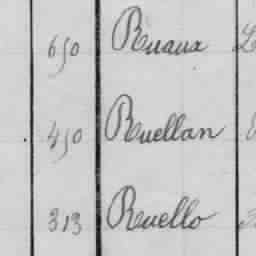 650 Ruaux
450 Ruellan
313 Ruello